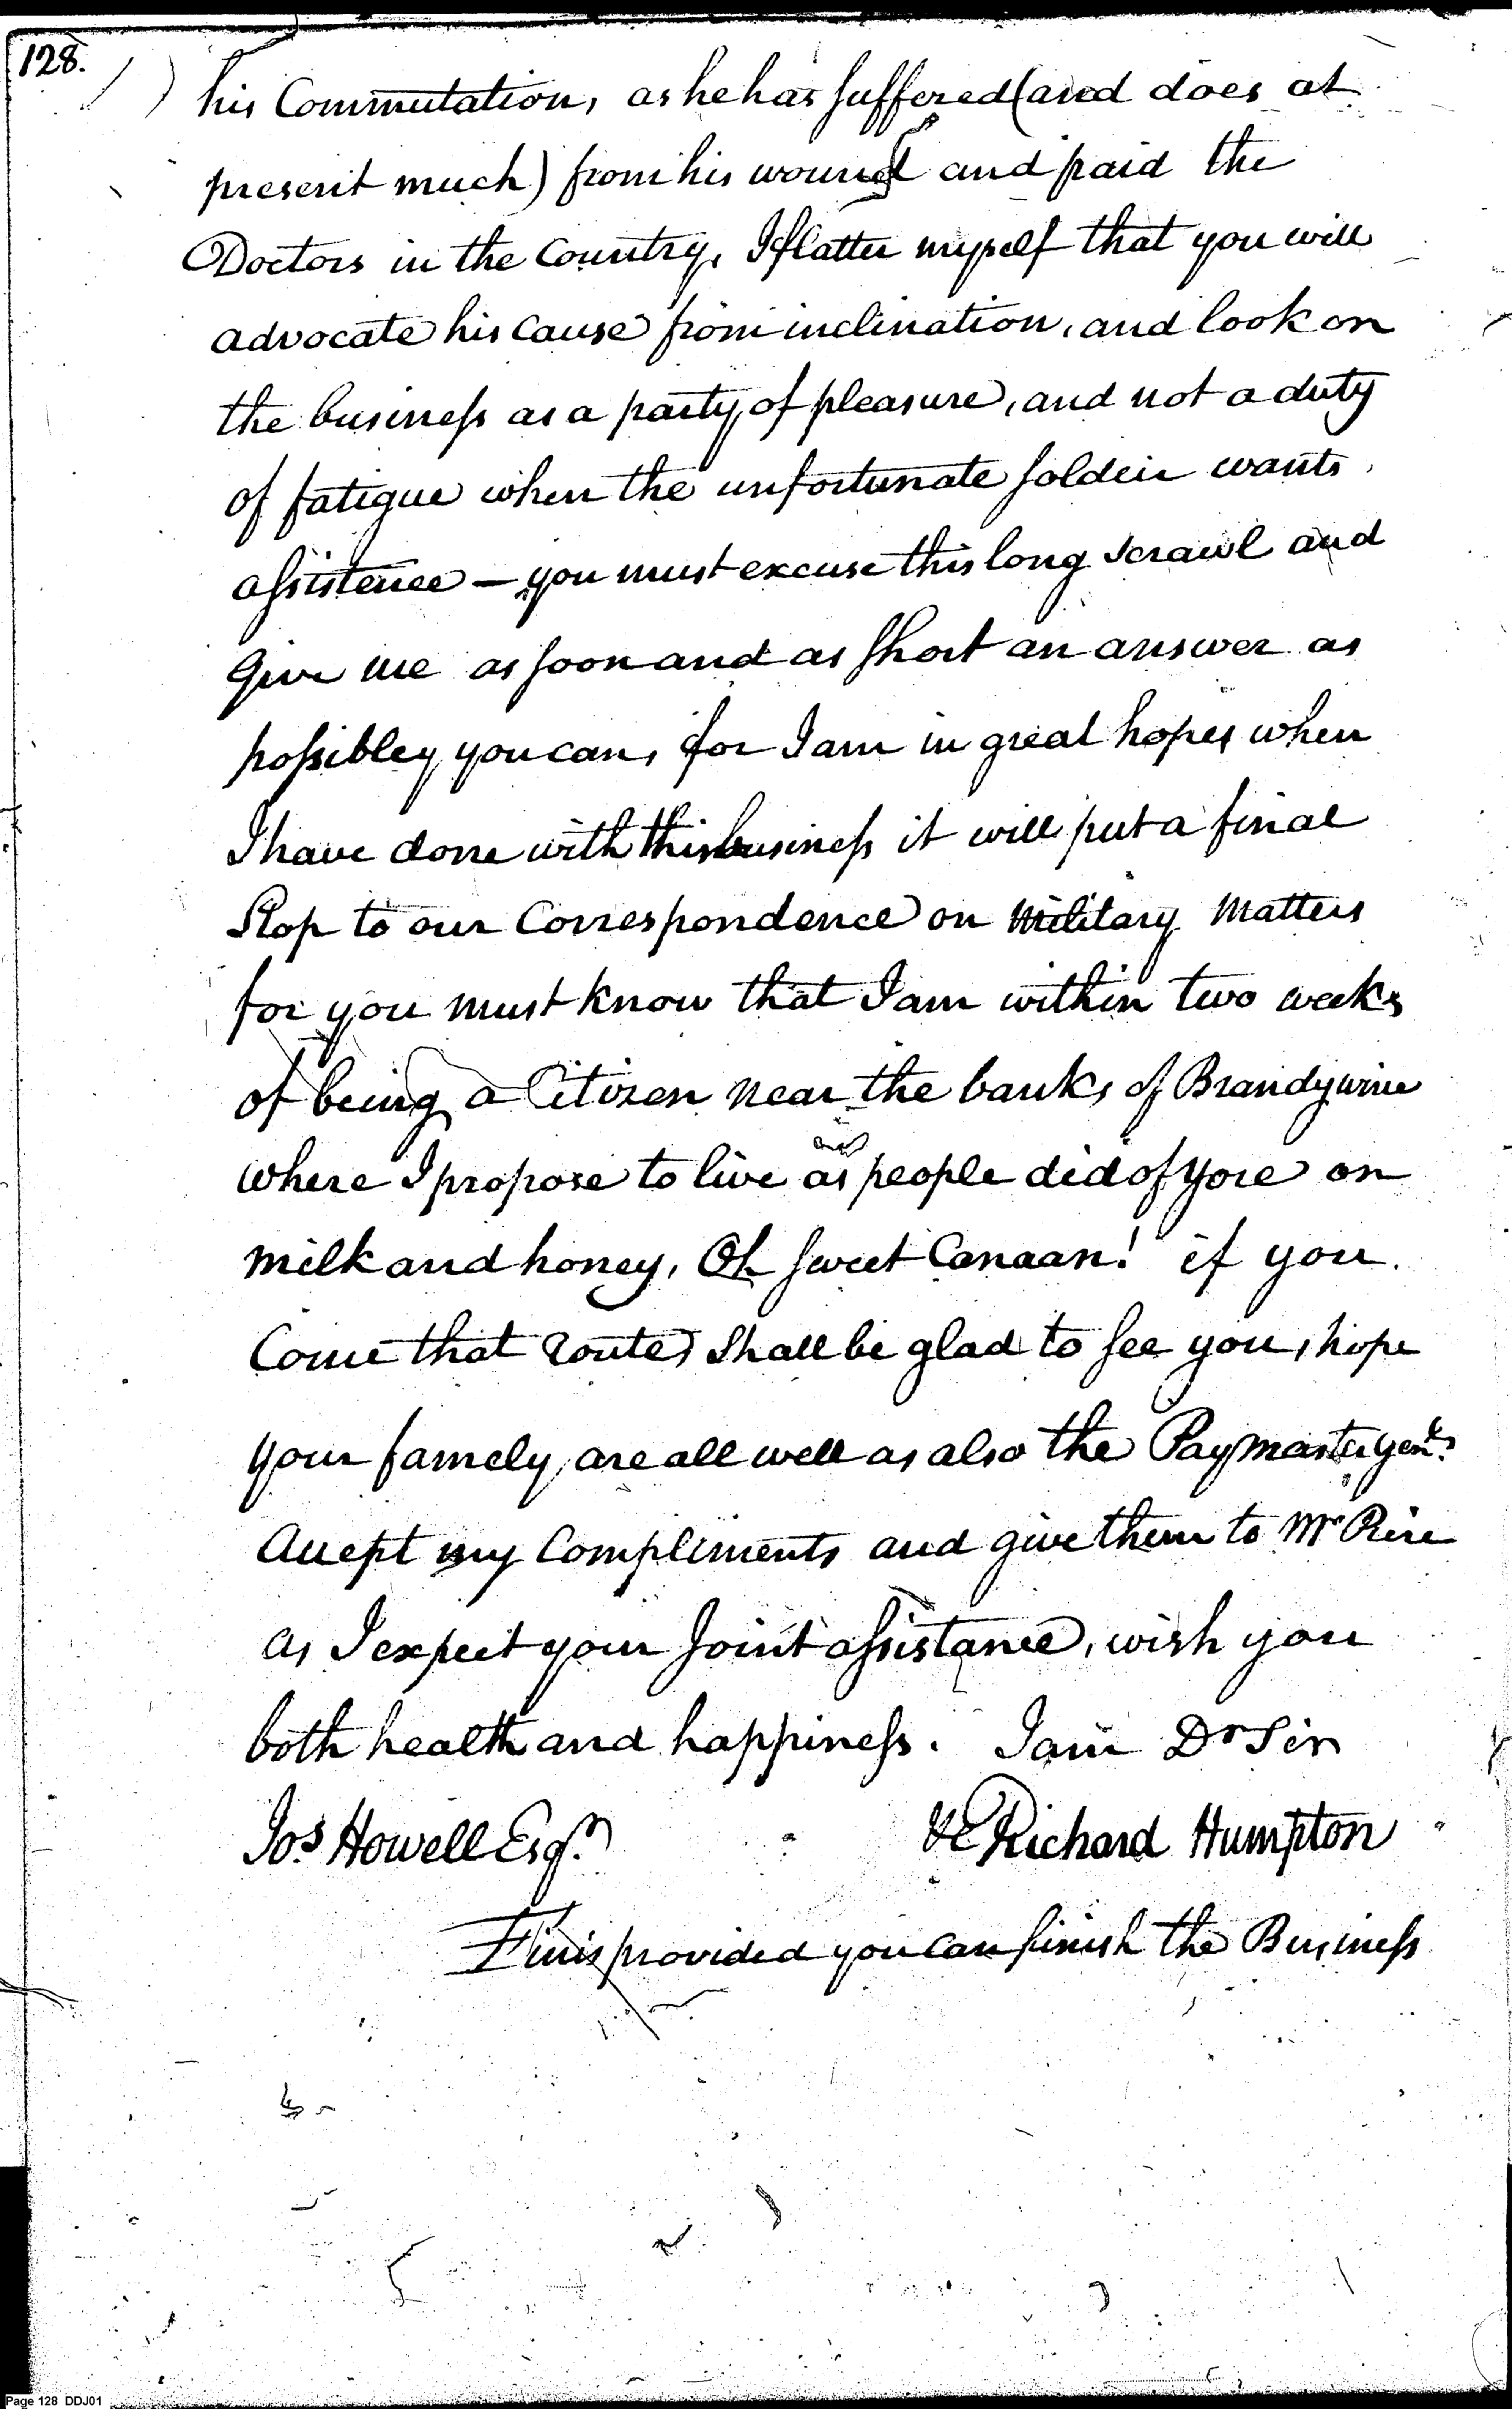 128.
his Commutation, as he has suffered (and does at
present much) from his wound and paid the
Doctors in the Country, I flatter myself that you will
advocate his Cause from inclination, and look on
the business as a party of pleasure, and not a duty
of fatigue when the unfortunate soldeir wants
assistence — you must excuse this long scrawl and
Give me as soon and as short an answer as
possibley you can, for I am in great hopes when
I have done with this business it will put a final
Stop to our Correspondence on Military Matters
for you must know that I am within two weeks
of being a Citizen near the banks of Brandywine
where I propose to live as people did of yore on
milk and honey, Oh sweet Canaan! if you
Come that route, Shall be glad to see you, hope
your famely, are all well as also the Paymaster
Accept my Compliments and give them to Mr
as I expect your Joint assistance, wish you
both health and happiness. I am Dr Sir
&c Richard Humpton
Jos Howell Esqr.
Finis provided you can finish the Business
Page 128 DDJ01